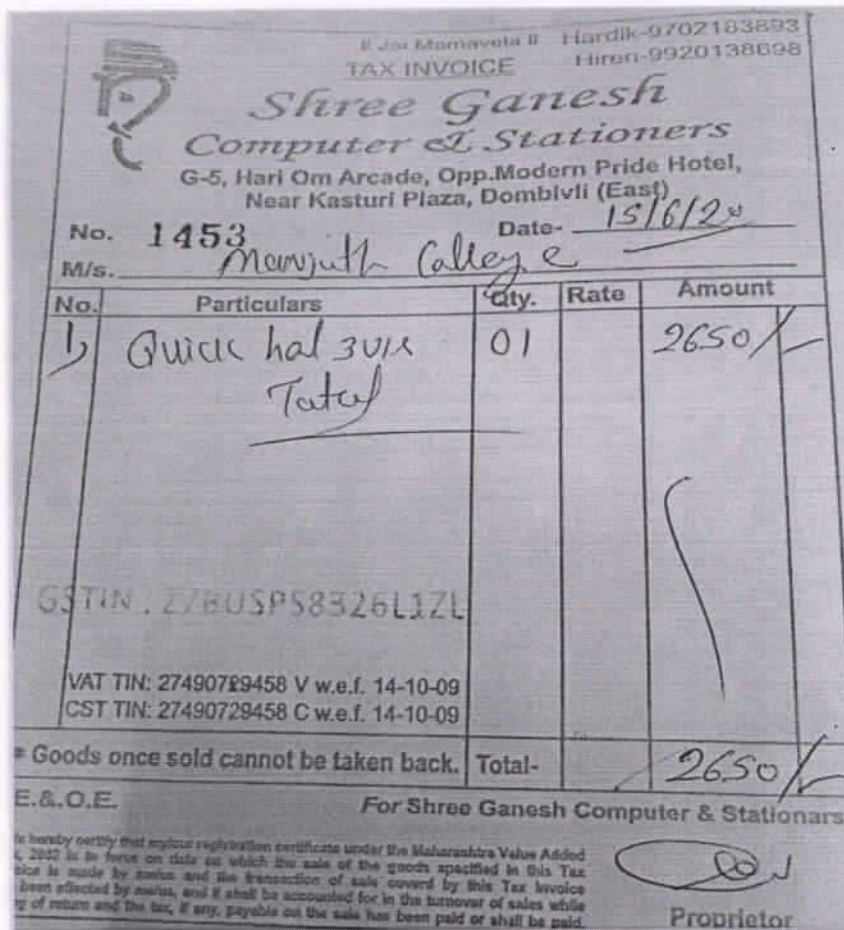 II Jai Mamavela II Hardik-9702183893
TAX INVOICE Hiren-9920138698
Shree Ganesh
Computer & Stationers
G-5, Hari Om Arcade, Opp.Modern Pride Hotel,
Near Kasturi Plaza, Dombivli (East)
No. 1453 Date- 15/6/20
M/s. College
No. Particulars Qty. Rate Amount
1) Quick hal 01 2650/-
Total
GSTIN : 27BUSPS8326L1ZL
VAT TIN: 27490729458 V w.e.f. 14-10-09
CST TIN: 27490729458 C w.e.f. 14-10-09
* Goods once sold cannot be taken back. Total- 2650/-
E.&.O.E. For Shree Ganesh Computer & Stationars
hereby certify that my/our registration certificate under the Maharashtra Value Added
2002 is in force on date on which the sale of the goods specified in this Tax
is made by me/us and the transaction of sale coverd by this Tax Invoice
been affected by me/us, and it shall be accounted for in the turnover of sales while
of return and the tax, if any, payable on the sale has been paid or shall be paid.
Proprietor